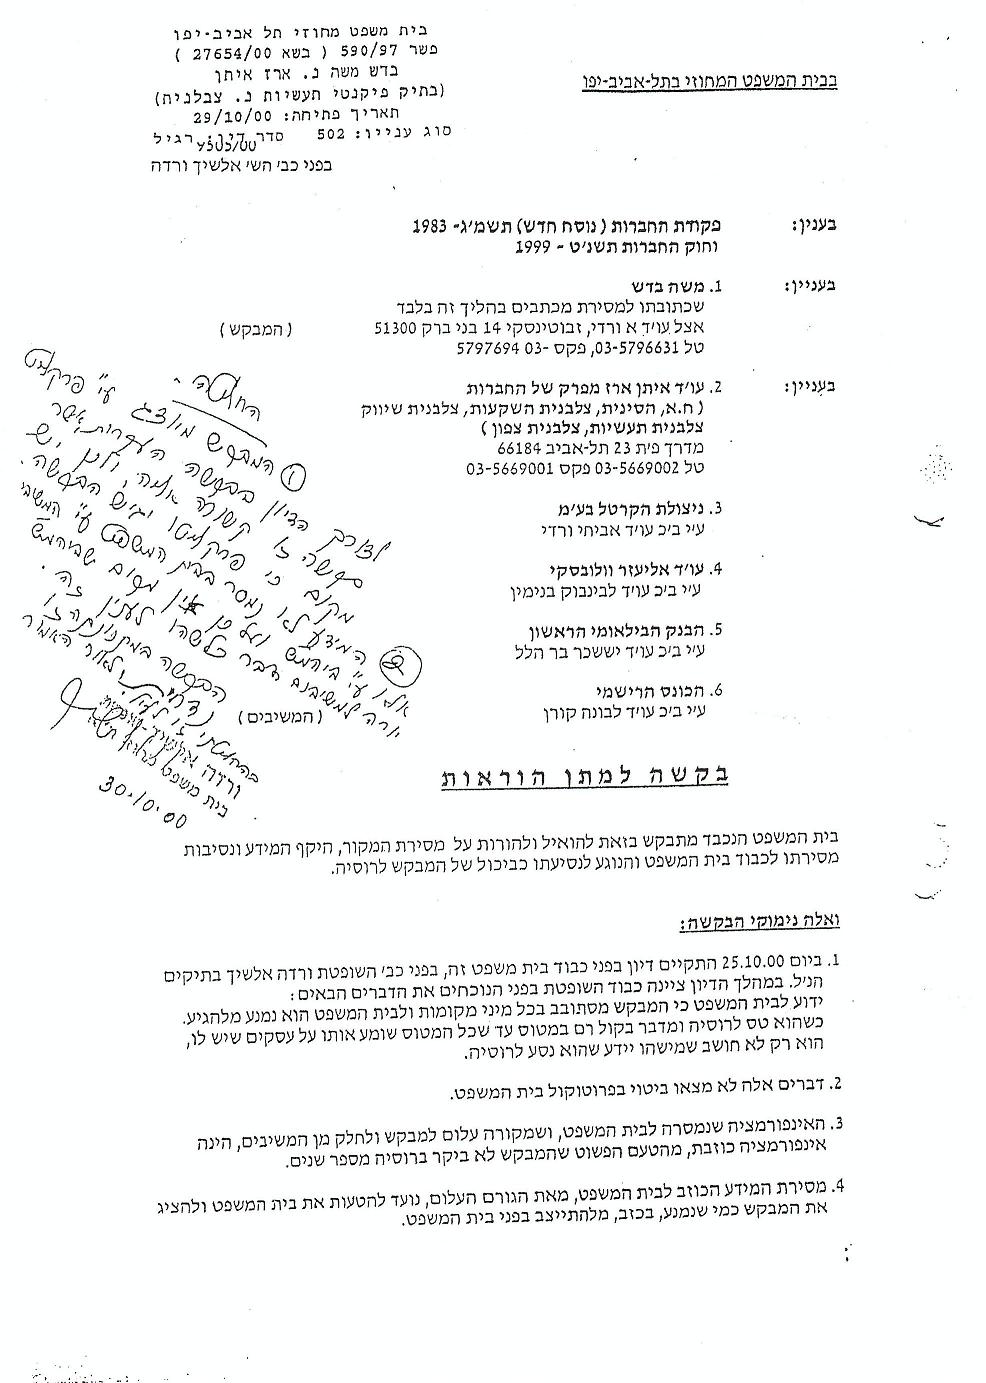 בית משפט מחוזי תל אביב-יפו
פשר 590/97 ( בשא 27654/00 )
בדש משה נ. ארז איתן
(בתיק פיקנטי תעשיות נ. צבלנית)
תאריך פתיחה: 29/10/00
סוג ענייו: 502 סדר דין: רגיל
בפני כב' הש' אלשיך ורדה
בבית המשפט המחוזי בתל-אביב-יפו
בענין: פקודת החברות (נוסח חדש) תשמ'ג- 1983
וחוק החברות תשנ'ט - 1999
בעניין: 1. משה בדש
שכתובתו למסירת מכתבים בהליך זה בלבד
אצל עו'ד א ורדי, זבוטינסקי 14 בני ברק 51300 (המבקש)
טל 03-5796631, פקס -03 5797694
בעניין: 2. עו'ד איתן ארז מפרק של החברות
( ח.א, הסינית, צלבנית השקעות, צלבנית שיווק
צלבנית תעשיות, צלבנית צפון )
מדרך פ'ת 23 תל-אביב 66184
טל 03-5669002 פקס 03-5669001
3. ניצולת הקרטל בע'מ
ע'י ב'כ עו'ד אביחי ורדי
4. עו'ד אליעזר וולובסקי
ע'י ב'כ עו'ד לבינבוק בנימין
5. הבנק הבילאומי הראשון
ע'י ב'כ עו'ד יששכר בר הלל
6. הכונס הרישמי
ע'י ב'כ עו'ד לבונה קורן (המשיבים)
החלטה
① המבקש מיוצג ע"י פרקליט
לצורך הדיון בבקשה העקרית אשר
בקשה זו קשורה אליה, ולכן יש
מקום כי פרקליטו יגיש הבקשה.
② המידע לא נמסר לבית המשפט ע"י המשיבים
30.10.00
בקשה למתן הוראות
בית המשפט הנכבד מתבקש בזאת להואיל ולהורות על מסירת המקור, היקף המידע ונסיבות
מסירתו לכבוד בית המשפט והנוגע לנסיעתו כביכול של המבקש לרוסיה.
ואלה נימוקי הבקשה:
1. ביום 25.10.00 התקיים דיון בפני כבוד בית משפט זה, בפני כב' השופטת ורדה אלשיך בתיקים
הנ'ל. במהלך הדיון ציינה כבוד השופטת בפני הנוכחים את הדברים הבאים:
ידוע לבית המשפט כי המבקש מסתובב בכל מיני מקומות ולבית המשפט הוא נמנע מלהגיע.
כשהוא טס לרוסיה ומדבר בקול רם במטוס עד שכל המטוס שומע אותו על עסקים שיש לו,
הוא רק לא חושב שמישהו יידע שהוא נסע לרוסיה.
2. דברים אלה לא מצאו ביטוי בפרוטוקול בית המשפט.
3. האינפורמציה שנמסרה לבית המשפט, ושמקורה עלום למבקש ולחלק מן המשיבים, הינה
אינפורמציה כוזבת, מהטעם הפשוט שהמבקש לא ביקר ברוסיה מספר שנים.
4. מסירת המידע הכוזב לבית המשפט, מאת הגורם העלום, נועד להטעות את בית המשפט ולהציג
את המבקש כמי שנמנע, בכזב, מלהתייצב בפני בית המשפט.